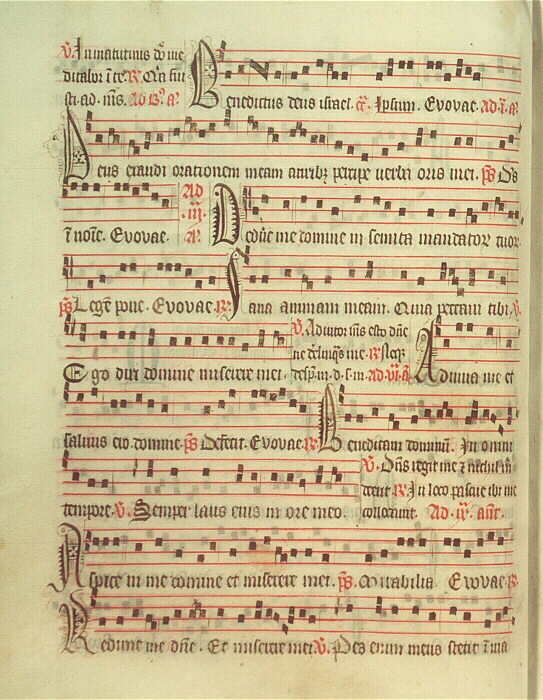 V. In matutinis dn̄e me
ditabor ī te. R. Q̄a fui
sti ad. iu͞s. Ad
Benedictus deus israel. Ipsum. Evovae. Ad. i. a
Deus exaudi orationem meam auribz percipe verba oris mei. ps Ds
ī noīe. Evovae.
Ad
.iii.
a
Deduc me domine in semita mandatoꝝ tuoꝝ
ps Legē pone. Evovae. R. Sana animam meam. Quia peccavi tibi. V.
Ego dixi domine miserere mei.
V. Adiutor m̄s esto dn̄e
ne derelinqs me. R.
Ad. vi. a
Adiuva me et
salvus ero domine. ps Defecit. Evovae. R. Benedicam dominū. In omni
tempore. V. Semper laus eius in ore meo.
V. Dn̄s regit me ⁊ nichil m̄
deerit R. In loco pascue ibi me
collocavit. Ad. ix. ant.
Aspice in me domine et miserere mei. ps. Mirabilia. Evovae. R.
Redime me dn̄e. Et miserere mei V. Pes enim meus stetit ī via